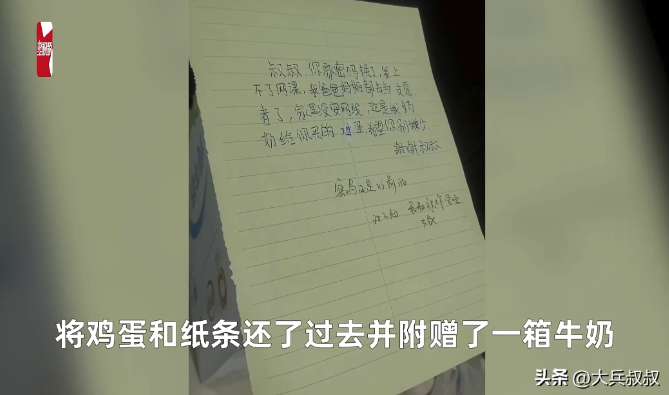 叔叔，你家密码换了，我上
不了网课，我爸爸妈妈都去当志愿
者了，家里没安网线，这是我奶
奶给你买的鸡蛋希望你别嫌少
谢谢叔叔
密码还是以前的
将鸡蛋和纸条还了过去并附赠了一箱牛奶
头条 @大兵叔叔